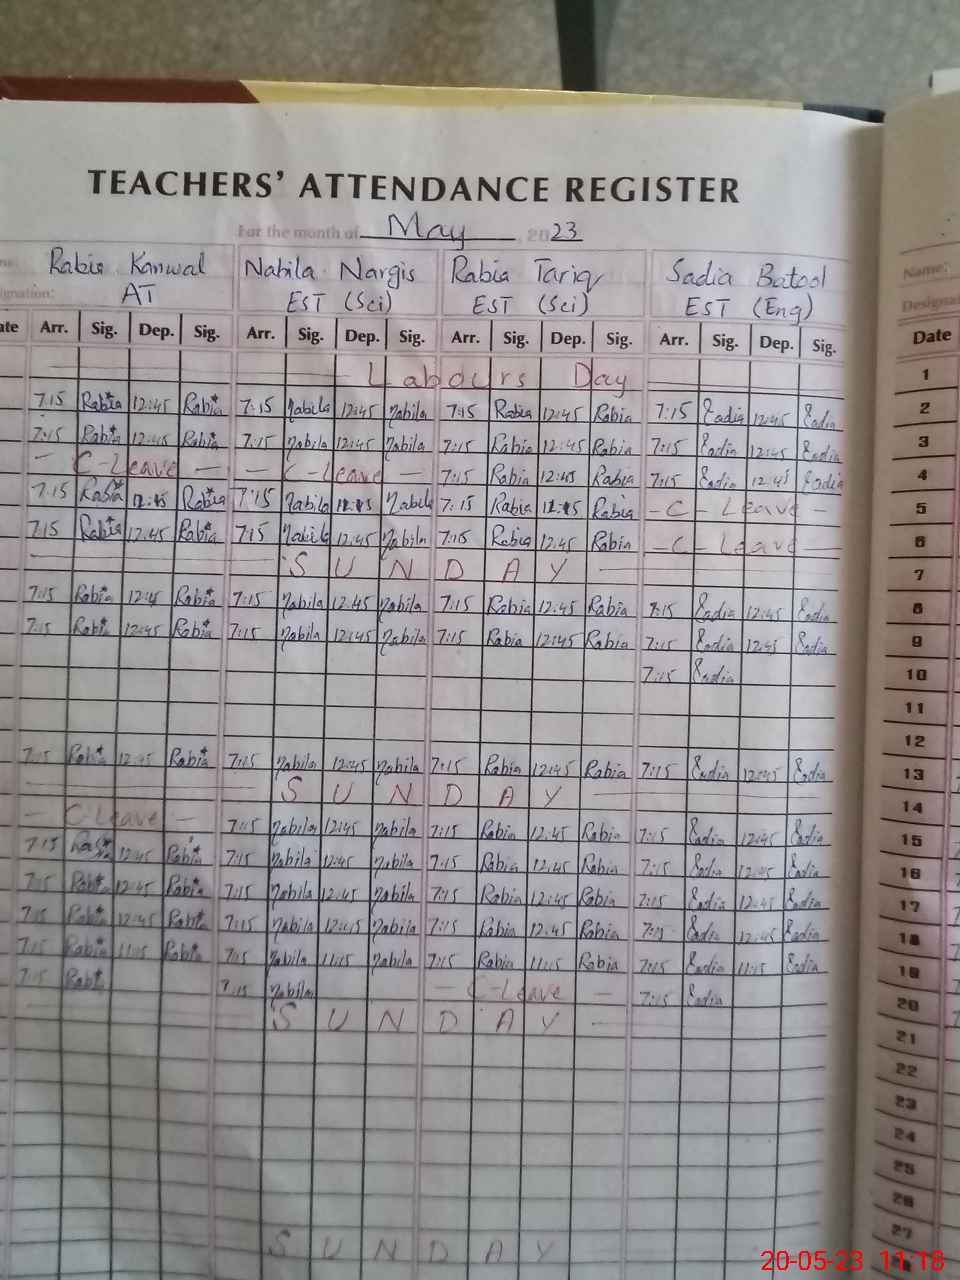 TEACHERS' ATTENDANCE REGISTER
For the month of May, 2023
Rabia Kanwal Nabila Nargis Rabia Tariq Sadia Batool Name:
AT EST (Sci) EST (Sci) EST (Eng)
Arr. Sig. Dep. Sig. Arr. Sig. Dep. Sig. Arr. Sig. Dep. Sig. Arr. Sig. Dep. Sig. Date
Labours Day 1
7:15 Rabia 12:45 Rabia 7:15 Nabila 12:45 Nabila 7:15 Rabia 12:45 Rabia 7:15 Sadia 12:45 Sadia 2
7:15 Rabia 12:45 Rabia 7:15 Nabila 12:45 Nabila 7:15 Rabia 12:45 Rabia 7:15 Sadia 12:45 Sadia 3
- C-Leave - - C-Leave - 7:15 Rabia 12:45 Rabia 7:15 Sadia 12:45 Sadia 4
7:15 Rabia 12:45 Rabia 7:15 Nabila 12:45 Nabila 7:15 Rabia 12:45 Rabia - C - Leave - 5
7:15 Rabia 12:45 Rabia 7:15 Nabila 12:45 Nabila 7:15 Rabia 12:45 Rabia - C - Leave - 6
SUNDAY 7
7:15 Rabia 12:45 Rabia 7:15 Nabila 12:45 Nabila 7:15 Rabia 12:45 Rabia 7:15 Sadia 12:45 Sadia 8
7:15 Rabia 12:45 Rabia 7:15 Nabila 12:45 Nabila 7:15 Rabia 12:45 Rabia 7:15 Sadia 12:45 Sadia 9
7:15 Sadia 10
11
12
7:15 Rabia 12:45 Rabia 7:15 Nabila 12:45 Nabila 7:15 Rabia 12:45 Rabia 7:15 Sadia 12:45 Sadia 13
SUNDAY 14
- C-Leave - 7:15 Nabila 12:45 Nabila 7:15 Rabia 12:45 Rabia 7:15 Sadia 12:45 Sadia 15
7:15 Rabia 12:45 Rabia 7:15 Nabila 12:45 Nabila 7:15 Rabia 12:45 Rabia 7:15 Sadia 12:45 Sadia 16
7:15 Rabia 12:45 Rabia 7:15 Nabila 12:45 Nabila 7:15 Rabia 12:45 Rabia 7:15 Sadia 12:45 Sadia 17
7:15 Rabia 12:45 Rabia 7:15 Nabila 12:45 Nabila 7:15 Rabia 12:45 Rabia 7:15 Sadia 12:45 Sadia 18
7:15 Rabia 11:15 Rabia 7:15 Nabila 11:15 Nabila 7:15 Rabia 11:15 Rabia 7:15 Sadia 11:15 Sadia 19
7:15 Rabia 7:15 Nabila - C-Leave - 7:15 Sadia 20
SUNDAY - 21
22
23
24
25
26
27
SUNDAY
20-05-23 11:18